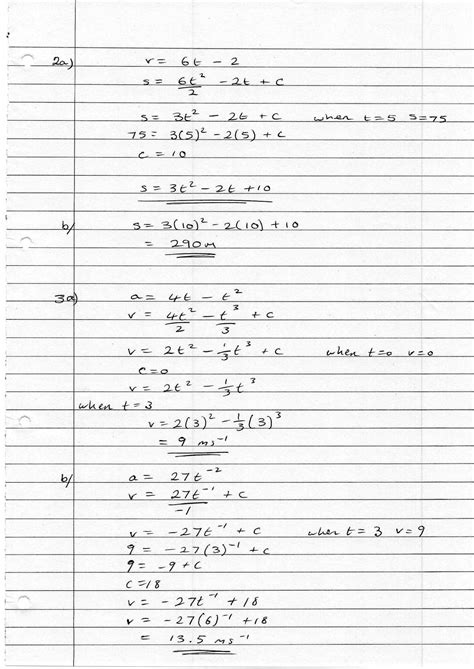 2a) v = 6t - 2
s = 6t²/2 - 2t + c
s = 3t² - 2t + c when t=5 s=75
75 = 3(5)² - 2(5) + c
c = 10
s = 3t² - 2t + 10
b/ s = 3(10)² - 2(10) + 10
= 290m
3a) a = 4t - t²
v = 4t²/2 - t³/3 + c
v = 2t² - 1/3t³ + c when t=0 v=0
c=0
v = 2t² - 1/3t³
when t=3
v = 2(3)² - 1/3(3)³
= 9 ms⁻¹
b/ a = 27t⁻²
v = 27t⁻¹/-1 + c
v = -27t⁻¹ + c when t = 3 v = 9
9 = -27(3)⁻¹ + c
9 = -9 + c
c=18
v = -27t⁻¹ + 18
v = -27(6)⁻¹ + 18
= 13.5 ms⁻¹